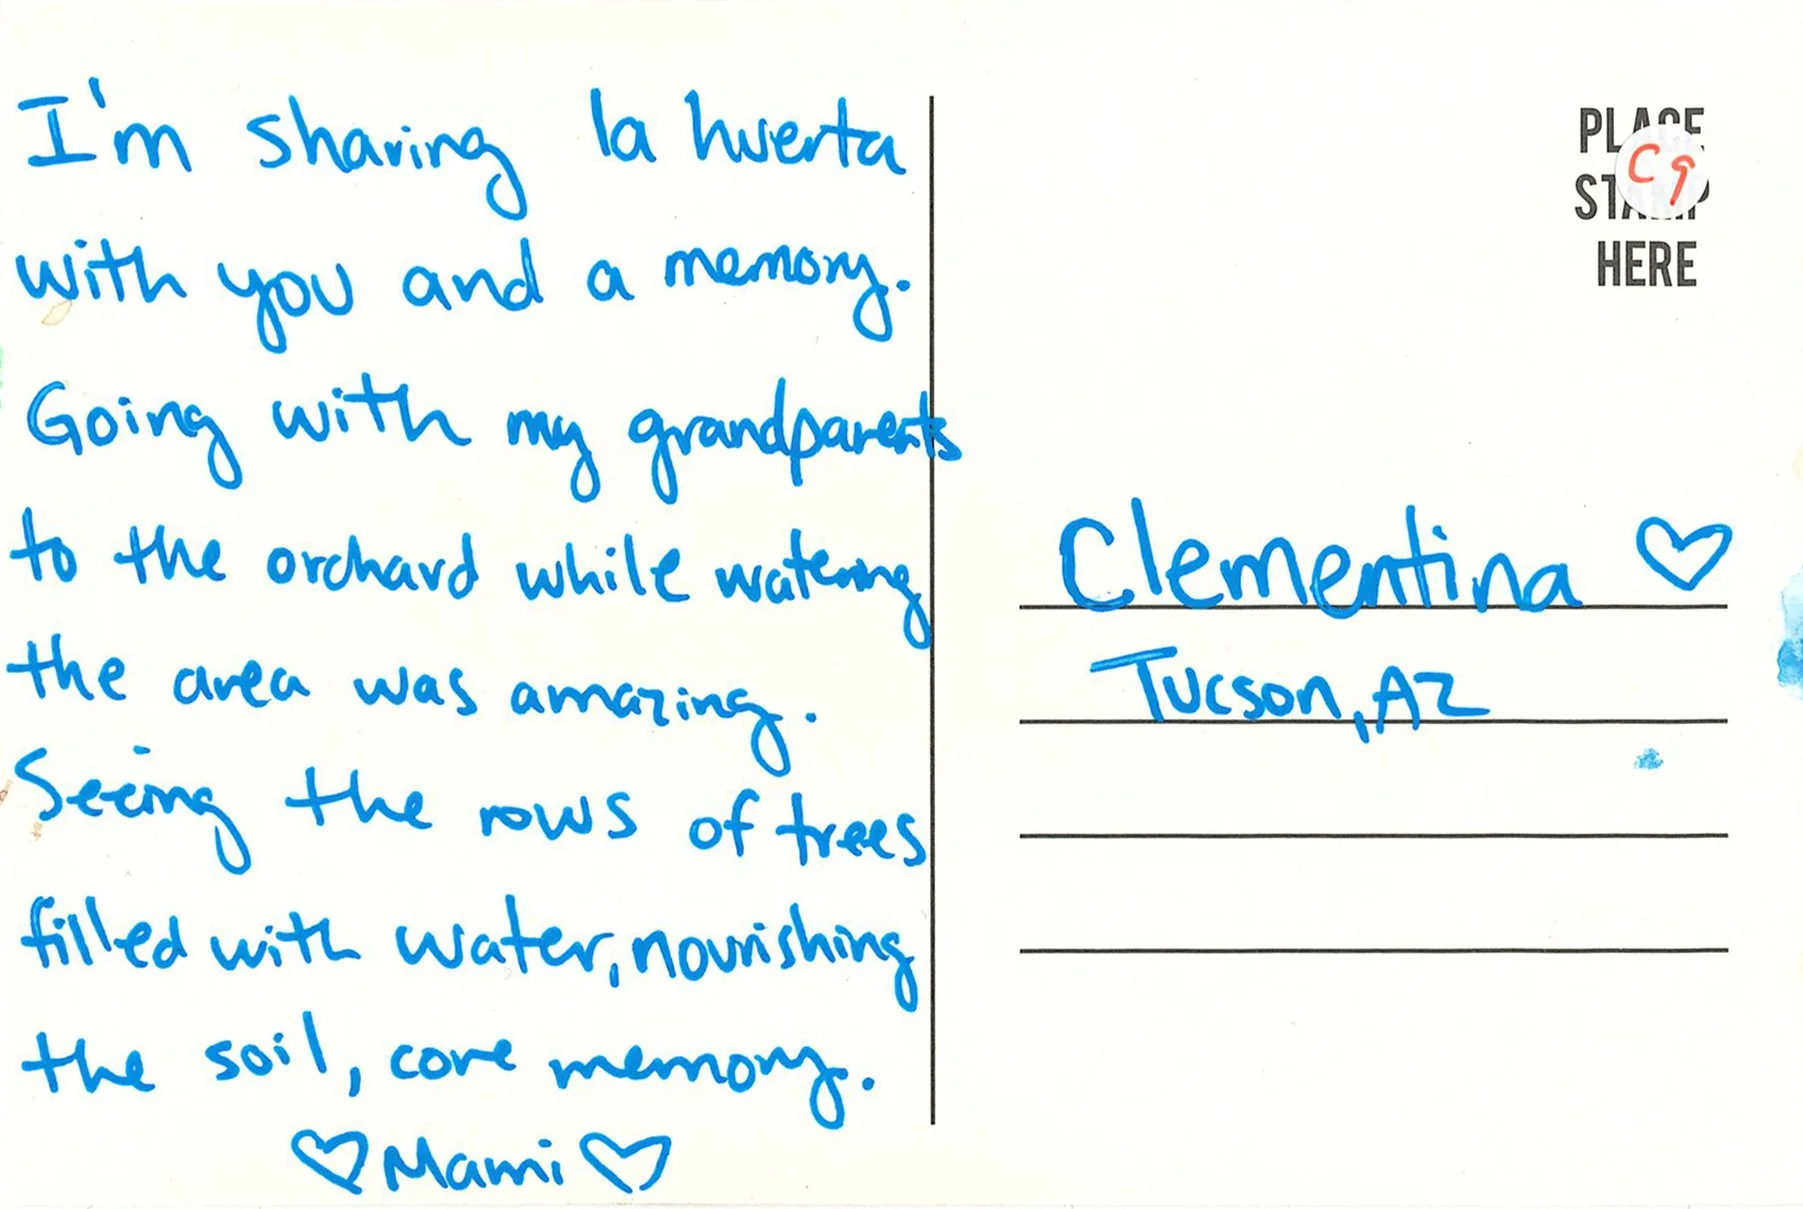 I'm sharing la huerta
with you and a memory.
Going with my grandparents
to the orchard while watering
the area was amazing.
Seeing the rows of trees
filled with water, nourishing
the soil, core memory.
♡ Mami ♡
PLACE
STAMP
HERE
C9
Clementina ♡
Tucson, AZ